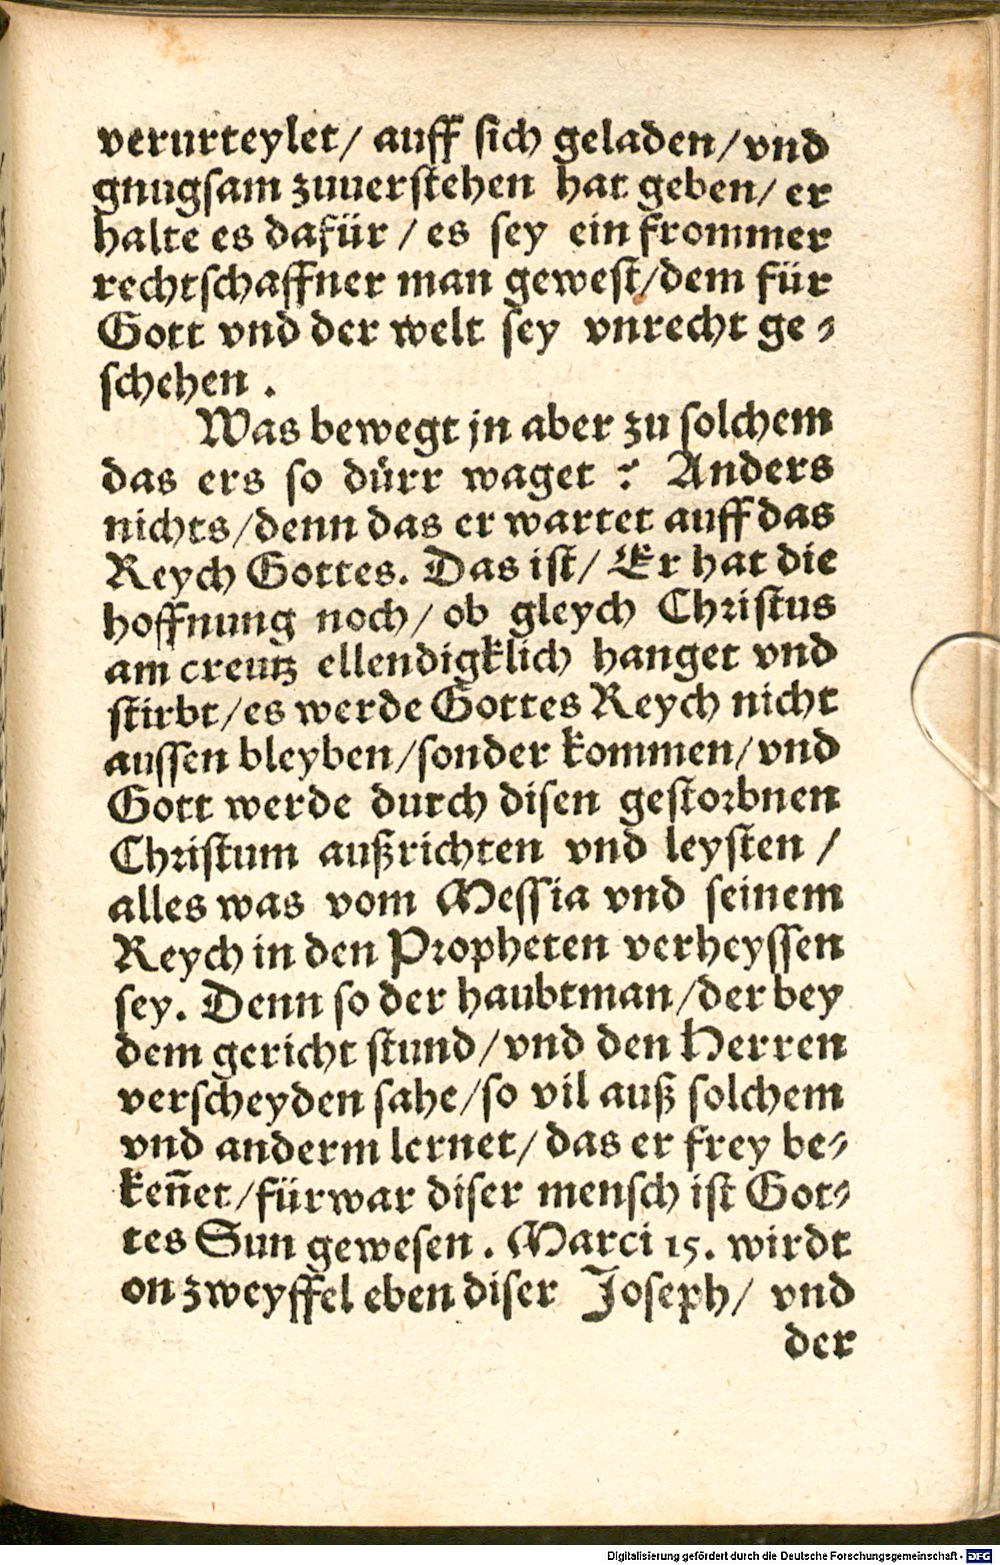 verurteylet/ auff sich geladen/vnd
gnugsam zuuerstehen hat geben/ er
halte es dafür / es sey ein frommer
rechtschaffner man gewest/dem für
Gott vnd der welt sey vnrecht ge⸗
schehen .
Was bewegt jn aber zu solchem
das ers so dürr waget ? Anders
nichts/denn das er wartet auff das
Reych Gottes. Das ist/ Er hat die
hoffnung noch/ ob gleych Christus
am creutz ellendigklich hanget vnd
stirbt/es werde Gottes Reych nicht
aussen bleyben/sonder kommen/vnd
Gott werde durch disen gestorbnen
Christum außrichten vnd leysten /
alles was vom Messia vnd seinem
Reych in den Propheten verheyssen
sey. Denn so der haubtman/der bey
dem gericht stund/vnd den Herren
verscheyden sahe/so vil auß solchem
vnd anderm lernet/ das er frey be⸗
keñet/fürwar diser mensch ist Got⸗
tes Sun gewesen . Marci 15. wirdt
on zweyffel eben diser Joseph/ vnd
der
Digitalisierung gefördert durch die Deutsche Forschungsgemeinschaft - DFG